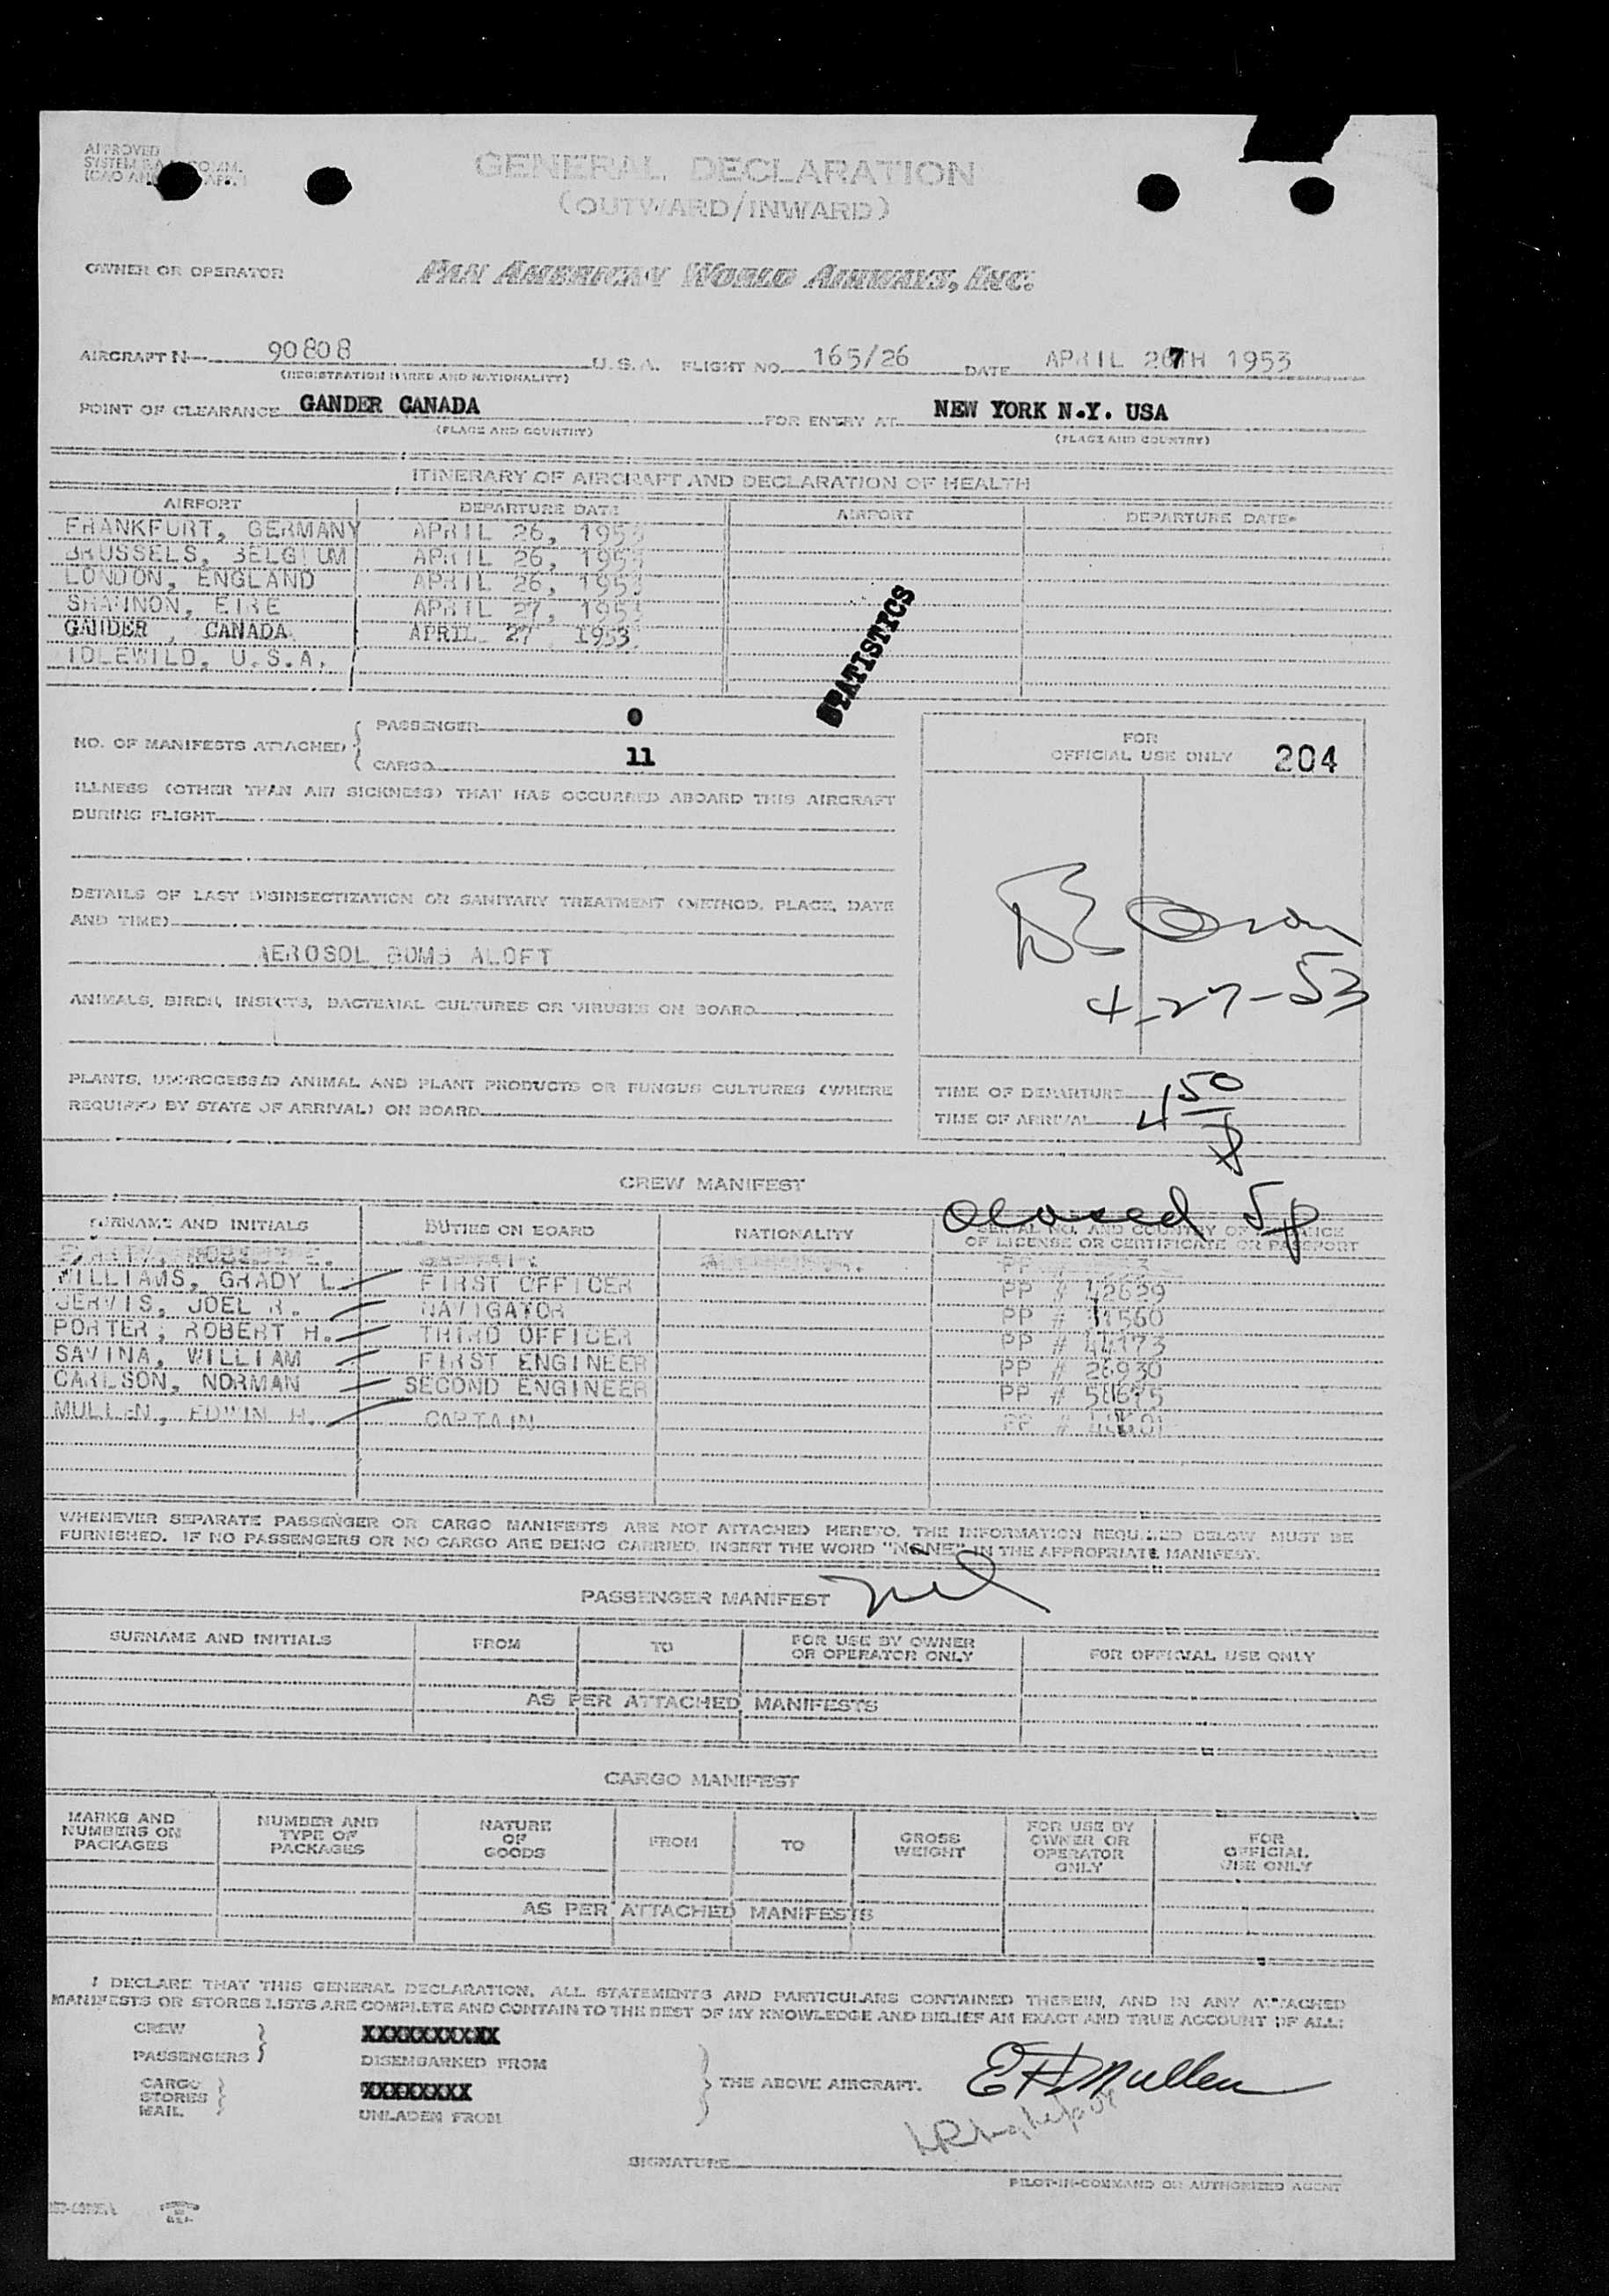 APPROVED
SYSTEM
GENERAL DECLARATION
(OUTWARD/INWARD)
OWNER OR OPERATOR PAN AMERICAN WORLD AIRWAYS, INC.
AIRCRAFT N— 90808 U.S.A. FLIGHT NO. 165/26 DATE APRIL 27TH 1953
(REGISTRATION MARKS AND NATIONALITY)
POINT OF CLEARANCE GANDER CANADA FOR ENTRY AT NEW YORK N.Y. USA
(PLACE AND COUNTRY) (PLACE AND COUNTRY)
ITINERARY OF AIRCRAFT AND DECLARATION OF HEALTH
AIRPORT DEPARTURE DATE AIRPORT DEPARTURE DATE
FRANKFURT, GERMANY APRIL 26, 1953
BRUSSELS, BELGIUM APRIL 26, 1953
LONDON, ENGLAND APRIL 26, 1953
SHANNON, EIRE APRIL 27, 1953
GANDER , CANADA APRIL 27 1953
IDLEWILD, U.S.A.
STATISTICS
NO. OF MANIFESTS ATTACHED { PASSENGER 0
CARGO 11
FOR
OFFICIAL USE ONLY 204
ILLNESS (OTHER THAN AIR SICKNESS) THAT HAS OCCURRED ABOARD THIS AIRCRAFT
DURING FLIGHT
DETAILS OF LAST DISINSECTIZATION OR SANITARY TREATMENT (METHOD, PLACE, DATE
AND TIME)
AEROSOL BOMB ALOFT
4-27-53
ANIMALS, BIRDS, INSECTS, BACTERIAL CULTURES OR VIRUSES ON BOARD
PLANTS, UNPROCESSED ANIMAL AND PLANT PRODUCTS OR FUNGUS CULTURES (WHERE
REQUIRED BY STATE OF ARRIVAL) ON BOARD
TIME OF DEPARTURE
TIME OF ARRIVAL 4 50
CREW MANIFEST
Closed 5p
SURNAME AND INITIALS DUTIES ON BOARD NATIONALITY SERIAL NO. AND COUNTRY OF ISSUANCE
OF LICENSE OR CERTIFICATE OR PASSPORT
WILLIAMS, GRADY L. FIRST OFFICER PP # 42629
JERVIS, JOEL R. NAVIGATOR PP # 11560
PORTER, ROBERT H. THIRD OFFICER PP # 44173
SAVINA, WILLIAM FIRST ENGINEER PP # 26930
CARLSON, NORMAN SECOND ENGINEER PP #
MULLEN, EDWIN H. CAPTAIN PP #
WHENEVER SEPARATE PASSENGER OR CARGO MANIFESTS ARE NOT ATTACHED HERETO, THE INFORMATION REQUIRED BELOW MUST BE
FURNISHED. IF NO PASSENGERS OR NO CARGO ARE BEING CARRIED, INSERT THE WORD "NONE" IN THE APPROPRIATE MANIFEST.
PASSENGER MANIFEST nil
SURNAME AND INITIALS FROM TO FOR USE BY OWNER
OR OPERATOR ONLY FOR OFFICIAL USE ONLY
AS PER ATTACHED MANIFESTS
CARGO MANIFEST
MARKS AND
NUMBERS ON
PACKAGES NUMBER AND
TYPE OF
PACKAGES NATURE
OF
GOODS FROM TO GROSS
WEIGHT FOR USE BY
OWNER OR
OPERATOR
ONLY FOR
OFFICIAL
USE ONLY
AS PER ATTACHED MANIFESTS
I DECLARE THAT THIS GENERAL DECLARATION, ALL STATEMENTS AND PARTICULARS CONTAINED THEREIN, AND IN ANY ATTACHED
MANIFESTS OR STORES LISTS ARE COMPLETE AND CONTAIN TO THE BEST OF MY KNOWLEDGE AND BELIEF AN EXACT AND TRUE ACCOUNT OF ALL:
CREW XXXXXXXXXX
PASSENGERS } DISEMBARKED FROM
CARGO XXXXXXXX
STORES
MAIL } UNLADEN FROM
THE ABOVE AIRCRAFT.
EH Mullen
SIGNATURE
PILOT-IN-COMMAND OR AUTHORIZED AGENT